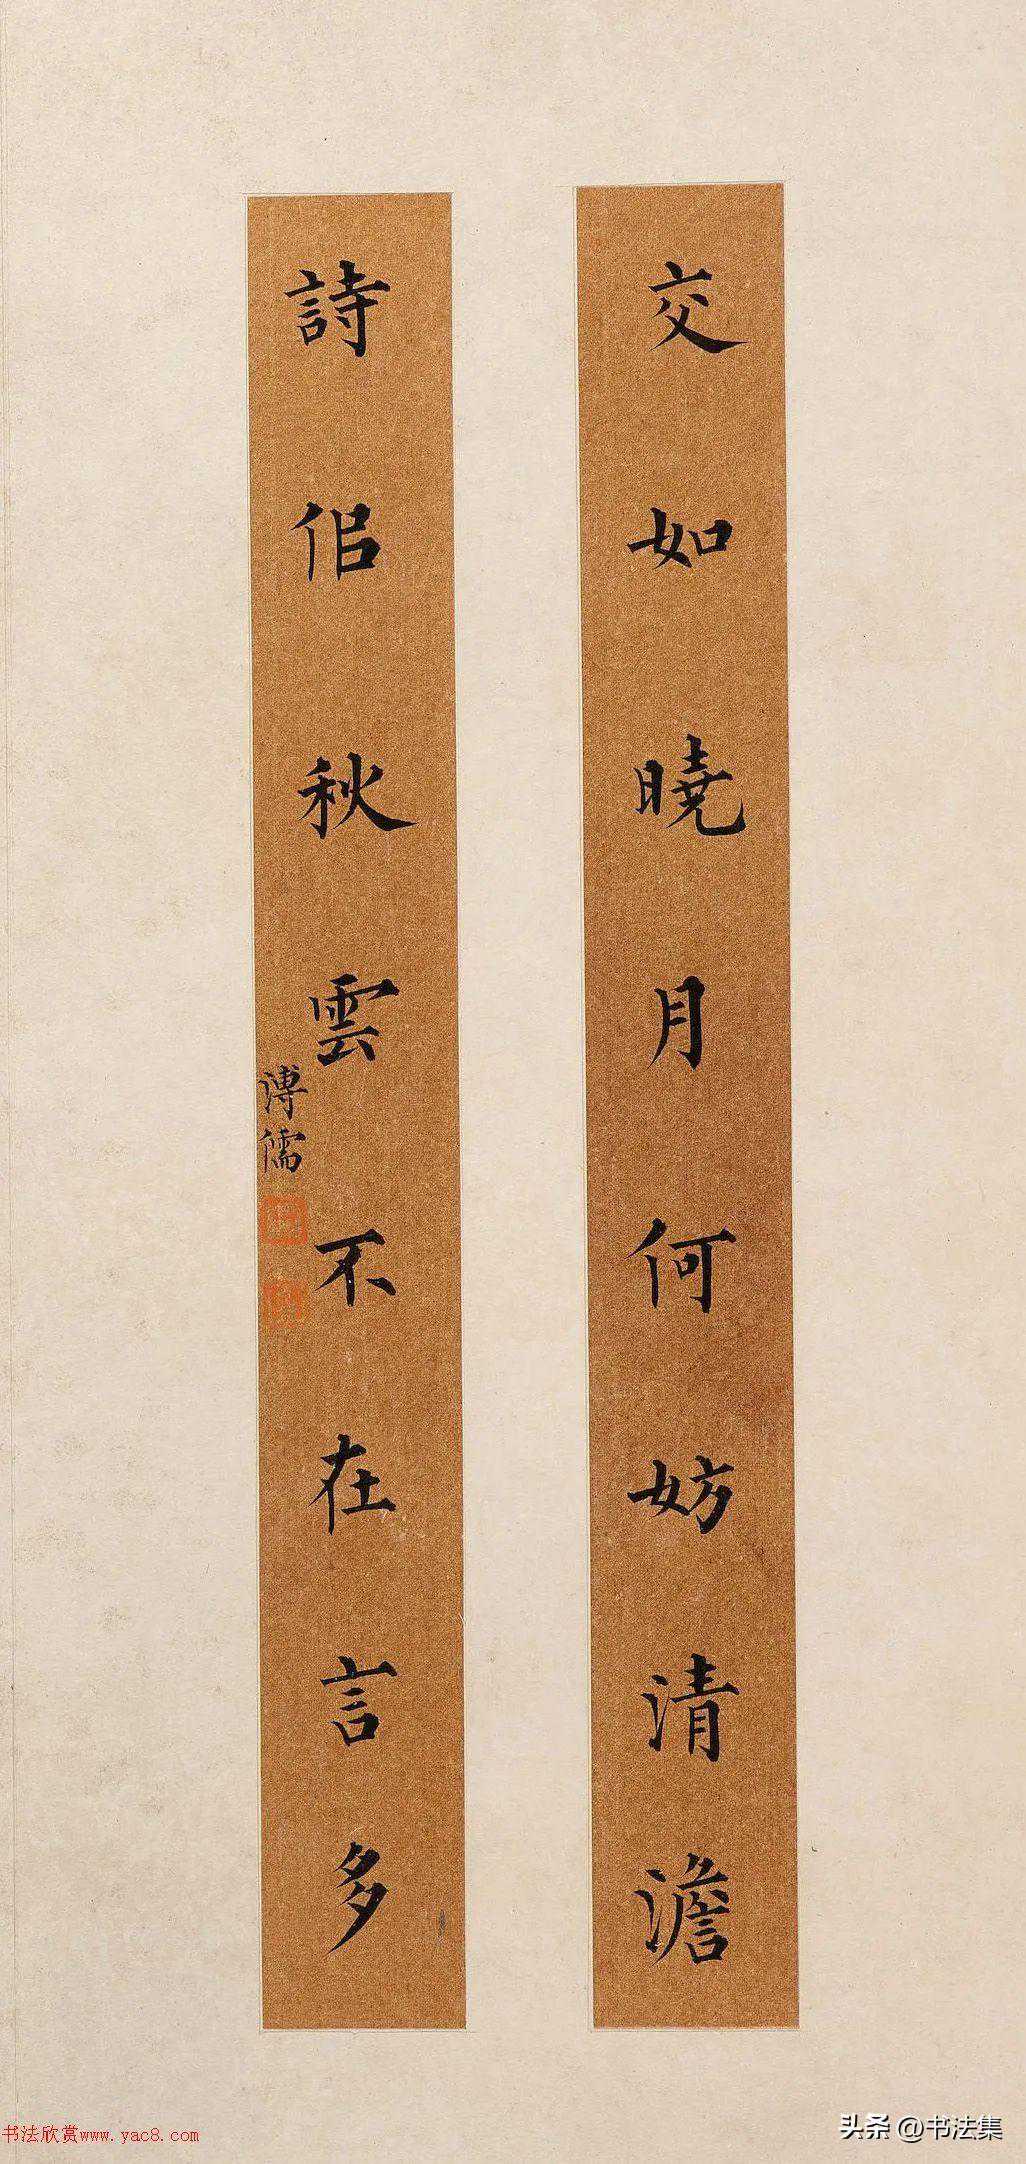 交如曉月何妨清澹
詩侣秋雲不在言多
溥儒
书法欣赏www.yac8.com
头条 @书法集